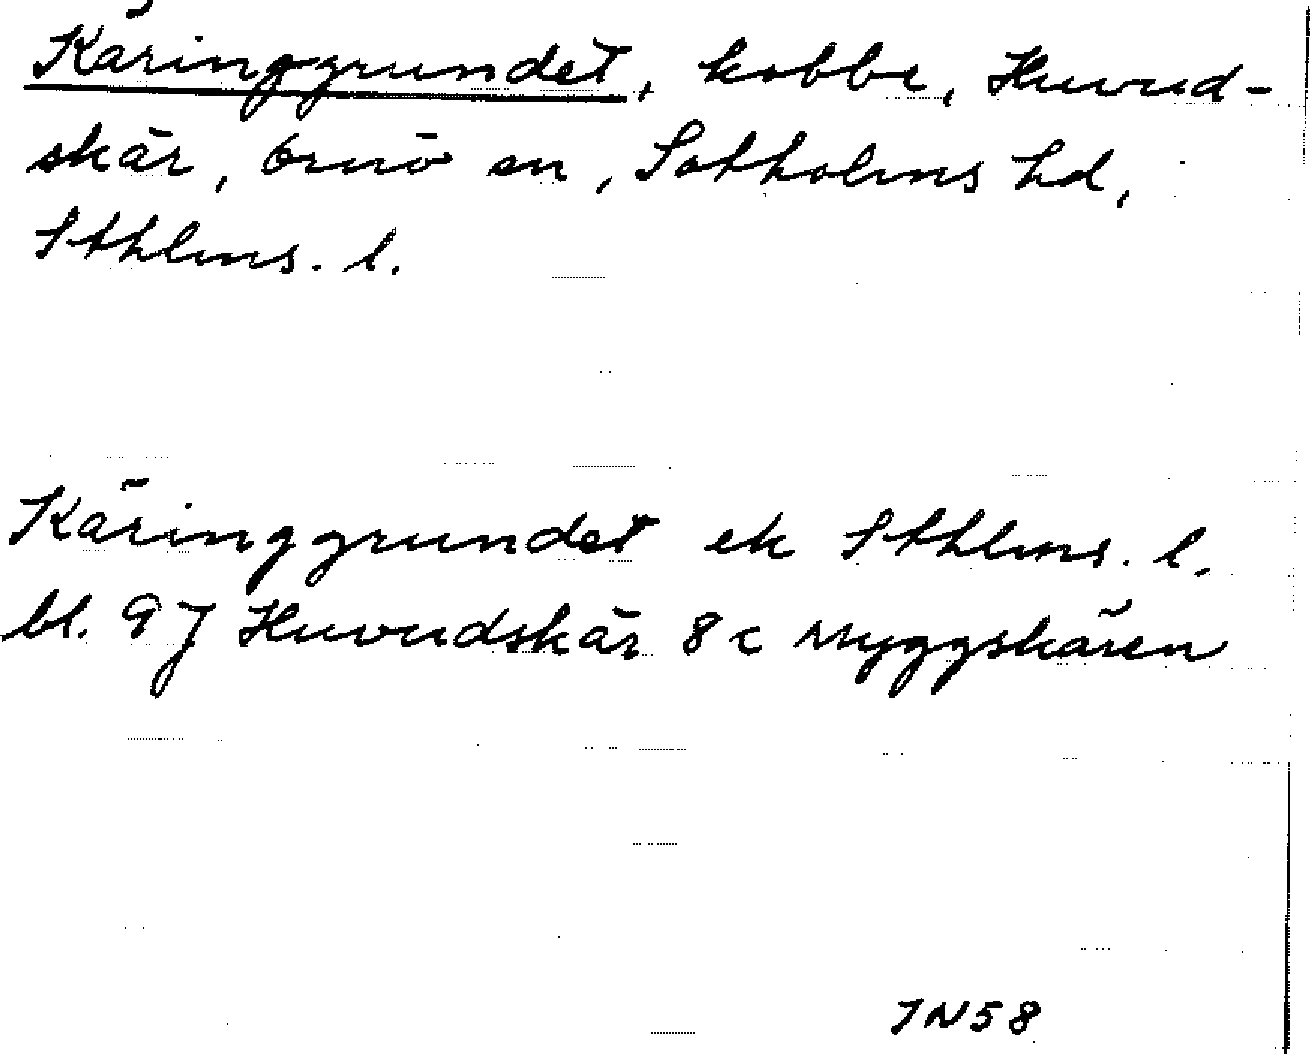 Käringgrundet, kobbe, Huvud-
skär, Ornö sn, Sotholms hd,
Sthlms. l.
Käringgrundet ek Sthlms. l.
bl. 97 Huvudskär 8 c Myggskären
IN58